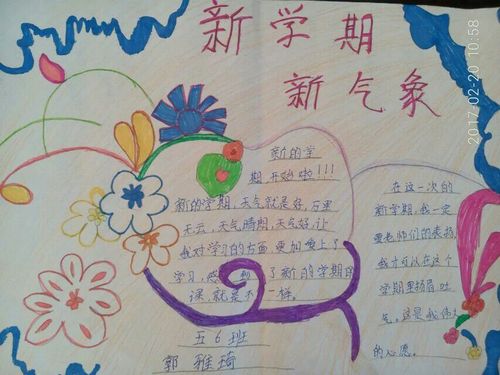 新学期
新气象
2017-02-20 10:58
新的学
期开始啦!!!
新的学期,天气就是好,万里
无云,天气晴朗,天气好,让
我对学习的方面更加爱上了
学习,感 了新的学期的
课,就是不一样。
五6班
郭雅琦
在这一次的
新学期,我一定
要老师们的表扬,
我才可以在这个
学期里扬眉吐
气,这是我伟大
的心愿。